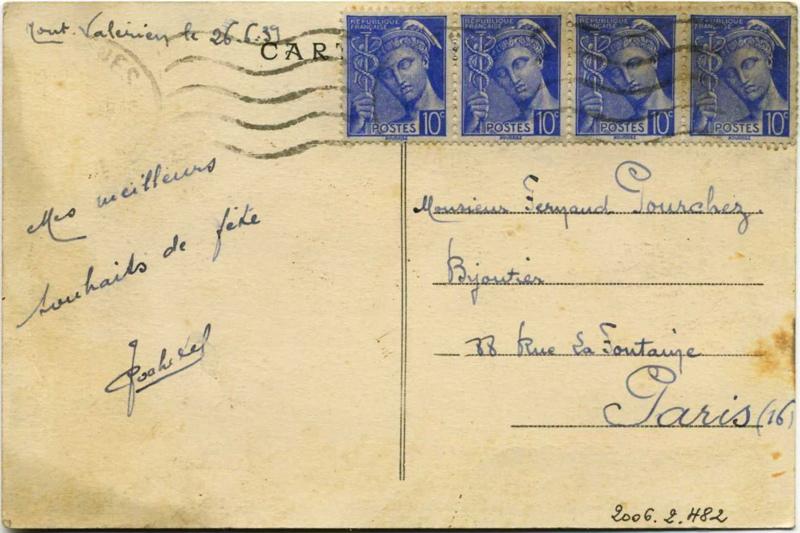 Mont-Valérien le 26.6.39
CART
RÉPUBLIQUE FRANÇAISE RÉPUBLIQUE FRANÇAISE RÉPUBLIQUE FRANÇAISE RÉPUBLIQUE FRANÇAISE
POSTES 10c POSTES 10c POSTES 10c POSTES 10c
Mes meilleurs
souhaits de fête
Monsieur Fernand Pourchez.
Bijoutier
88 Rue La Fontaine
Paris (16)
2006.2.482